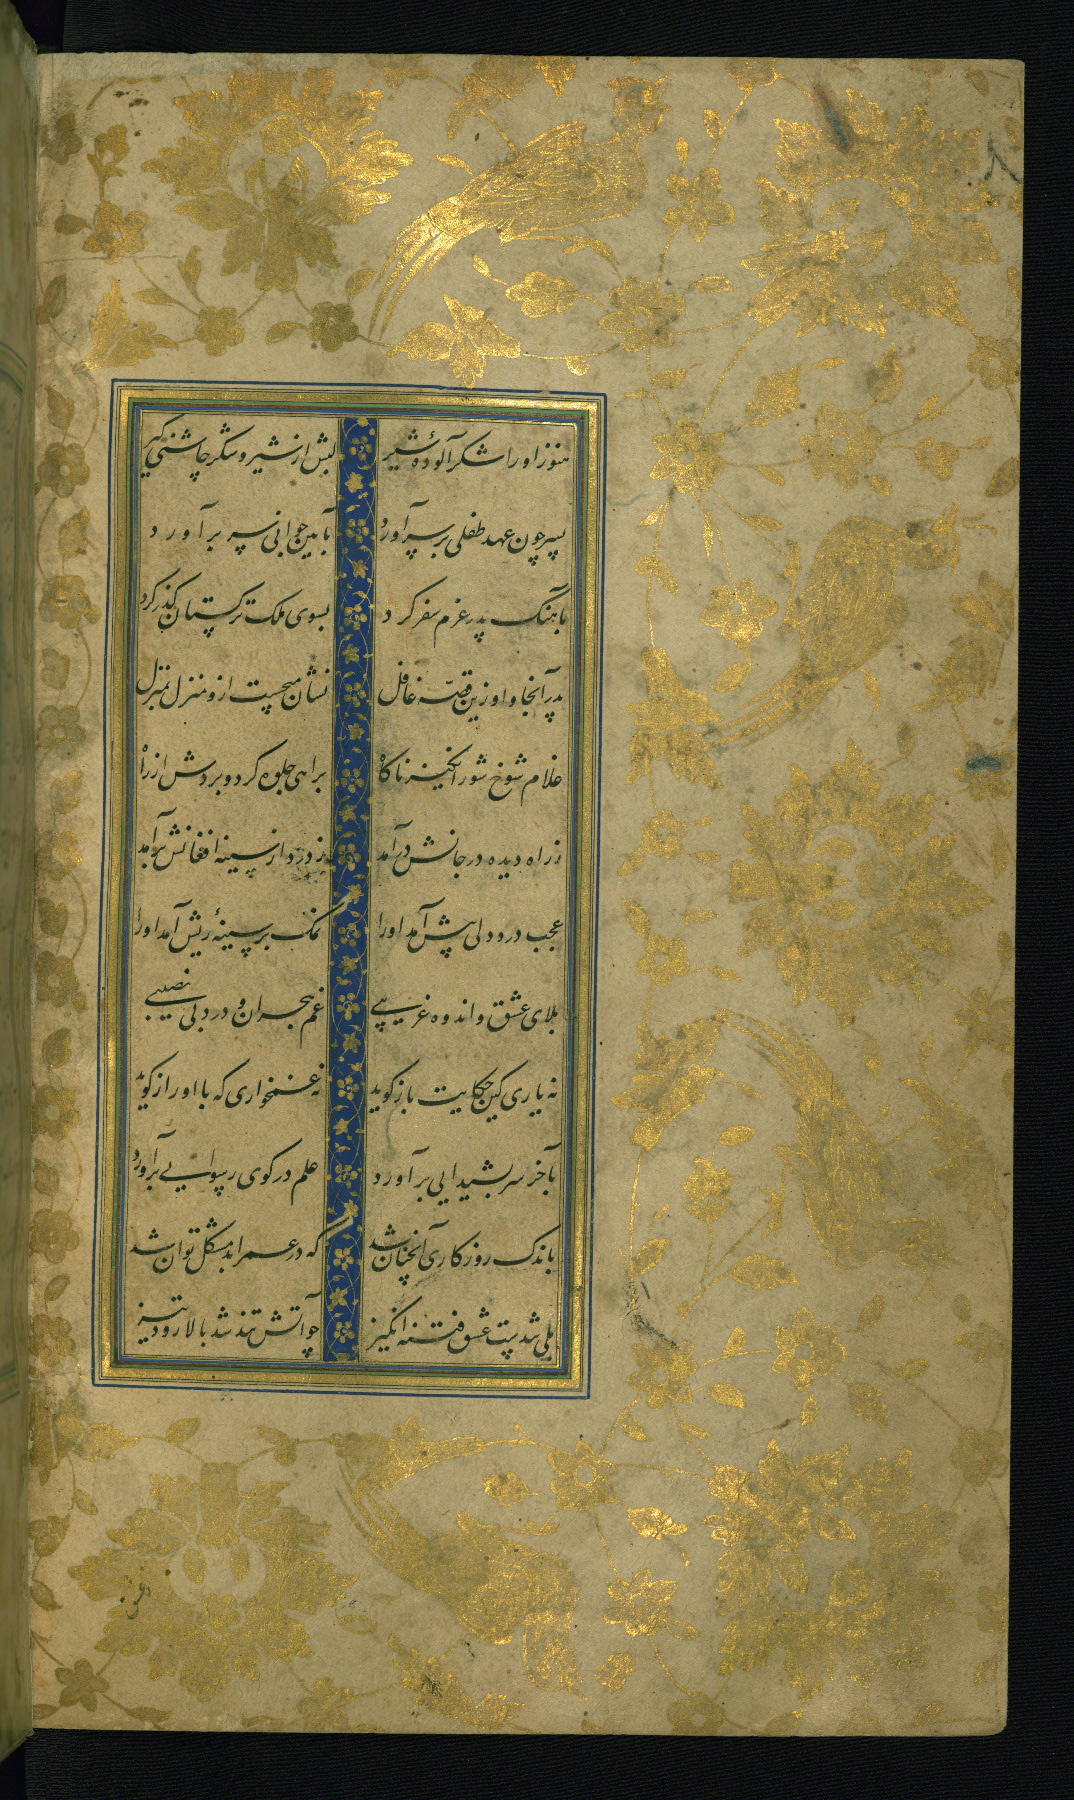 هنوز او را شکر آلودهٔ شیر لبش از شیر و شکر چاشنی گیر
پسر چون عهد طفلی بر سر آورد بآیین جوانی سر بر آورد
بآهنگ پدر عزم سفر کرد بسوی ملک ترکستان گذر کرد
پدر آنجا و او زین قصّه غافل نشان میجست ازو منزل بمنزل
غلام شوخ شورانگیز ناکاه براهی جلوه کرد و بردش از راه
ز راه دیده در جانش درآمد ز درد از سینه افغانش برآمد
عجب درد دلی پیش آمد او را نمک بر سینهٔ ریش آمد او را
بلای عشق و اندوه غریبی غم هجران و درد بی نصیبی
نه یاری کین حکایت باز کوید نه غمخواری که با او راز کوید
بآخر سر بشیدایی برآورد علم در کوی رسوایی برآورد
باندک روزکاری آنچنان شد که در عمر ابد مشکل توان شد
بلی شد پست عشق فتنه انگیز چو آتش تند شد بالا رود تیز